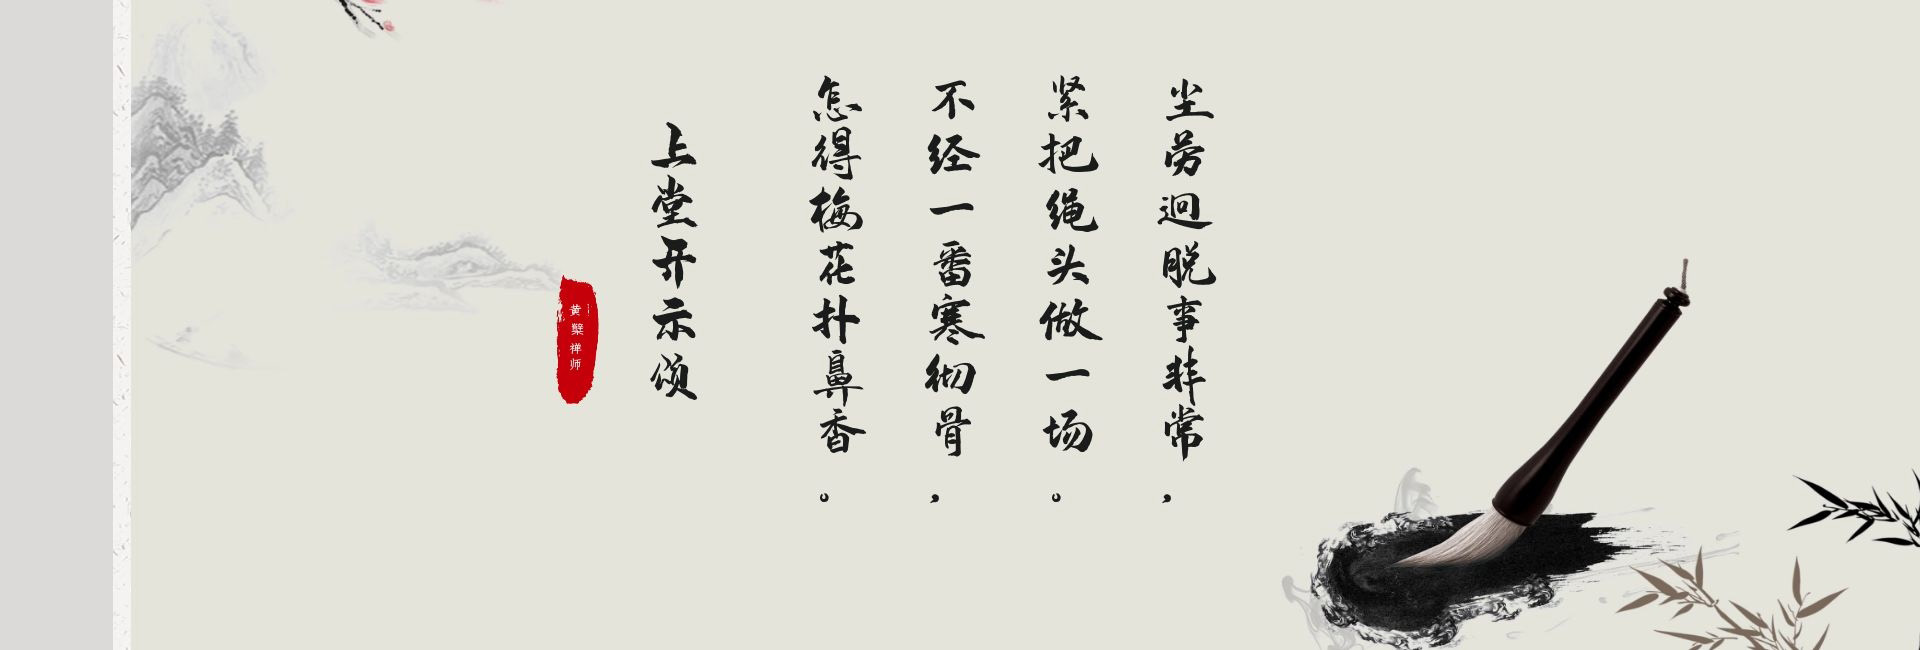 尘劳迥脱事非常，
紧把绳头做一场。
不经一番寒彻骨，
怎得梅花扑鼻香。
上堂开示颂
黄檗禅师